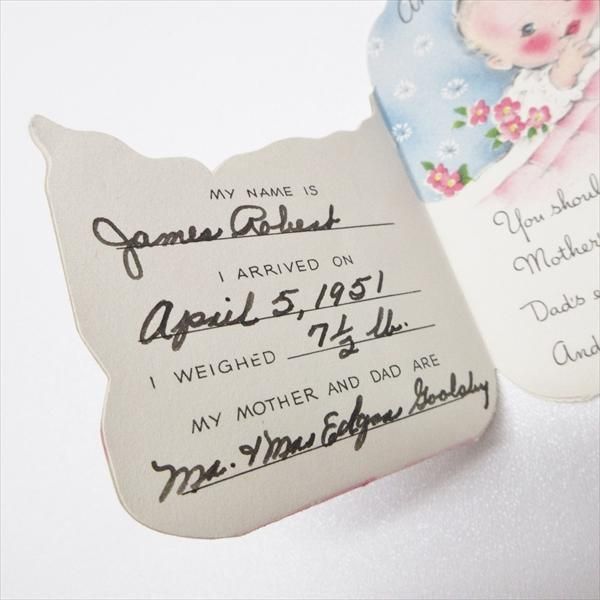 MY NAME IS
James Robert
I ARRIVED ON
April 5, 1951
I WEIGHED 7 1/2 lb.
MY MOTHER AND DAD ARE
Mr. & Mrs Edgar Goolsby
You
Mother's
Dad's
And